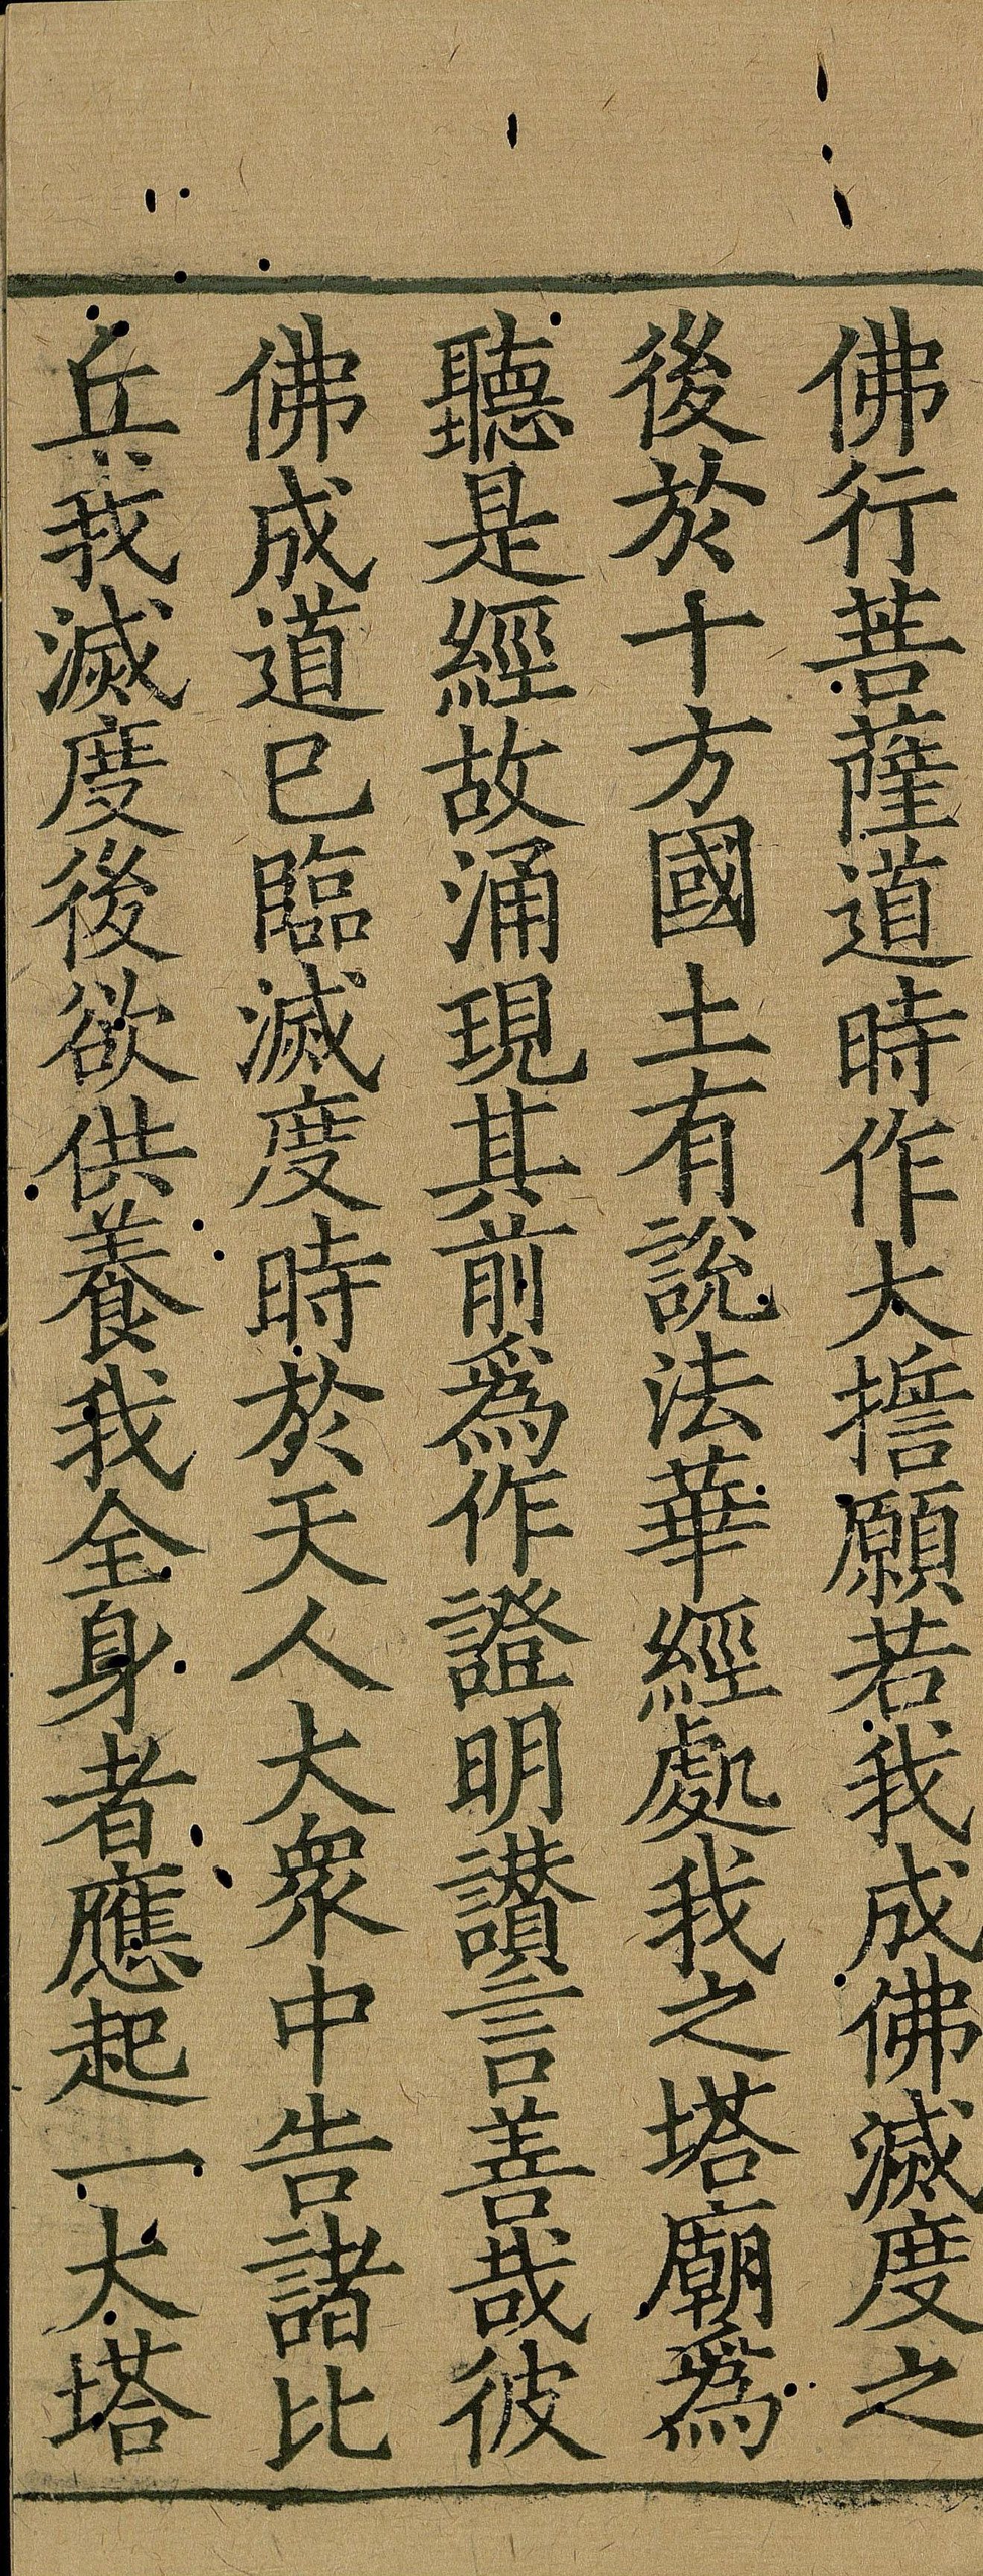 佛行菩薩道時作大誓願若我成佛滅度之
後於十方國土有說法華經處我之塔廟爲
聽是經故涌現其前爲作證明讃言善哉彼
佛成道已臨滅度時於天人大衆中告諸比
丘我滅度後欲供養我全身者應起一大塔